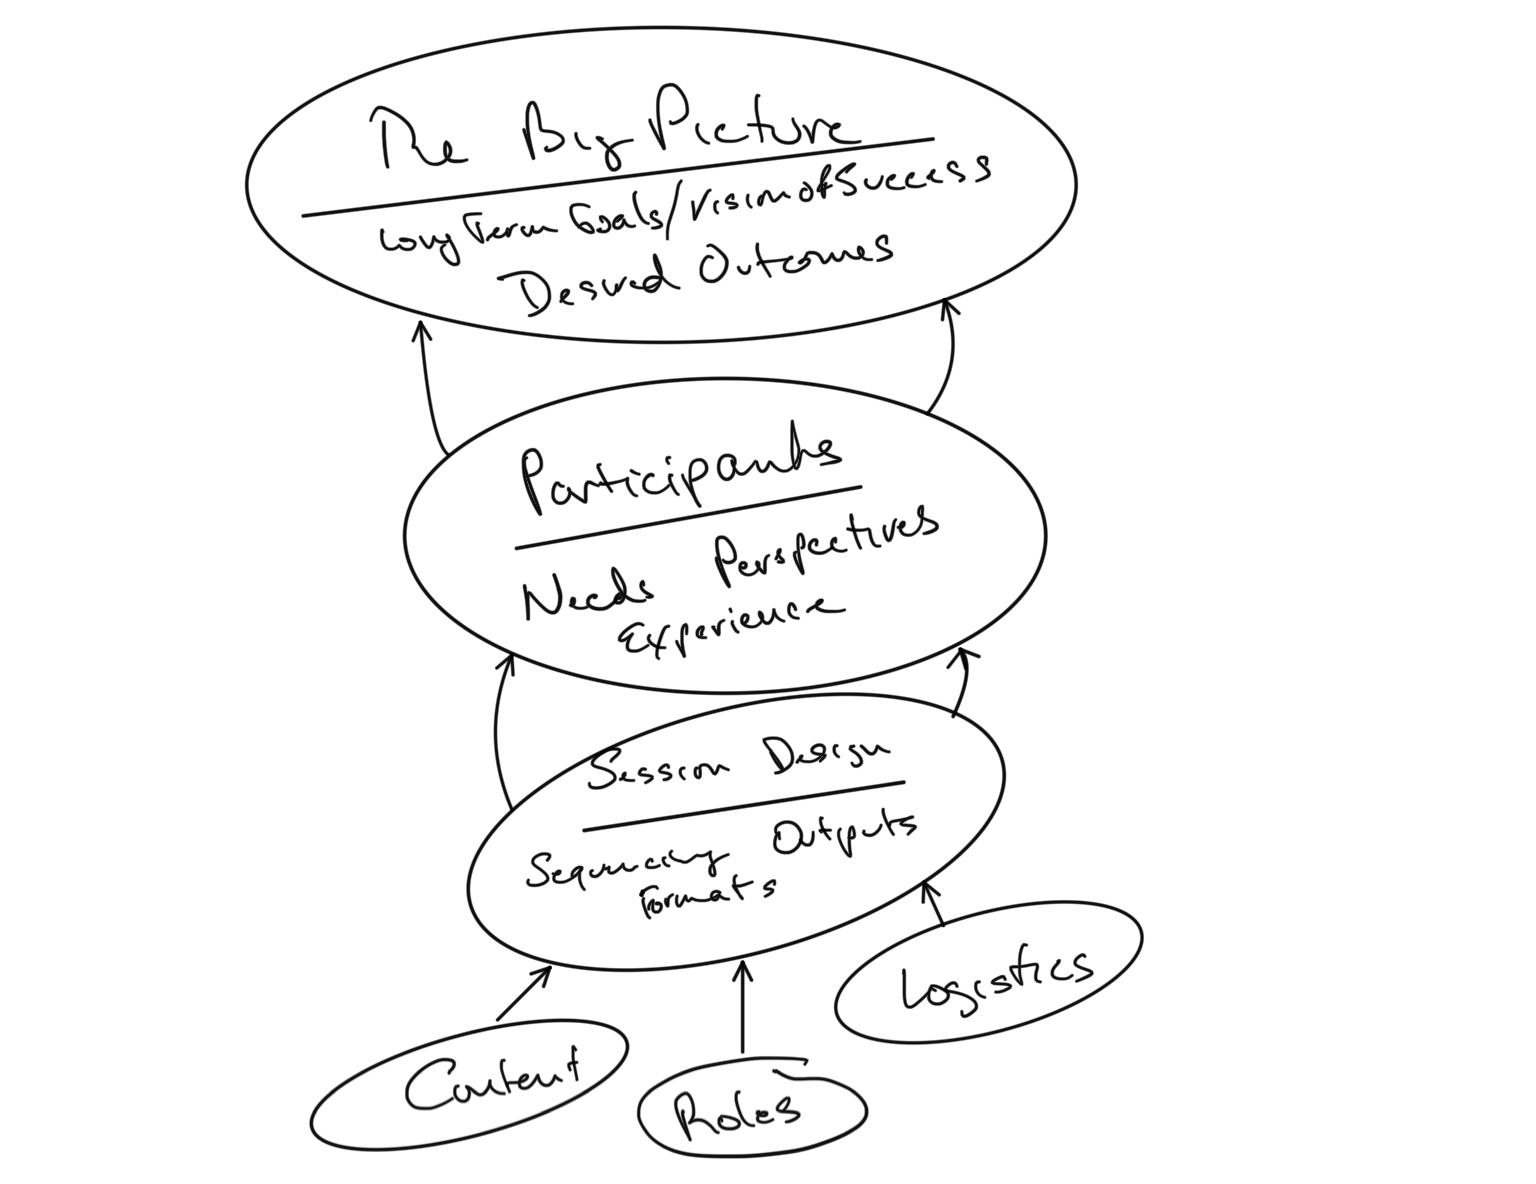 The Big Picture
Long Term Goals/Vision of Success
Desired Outcomes
Participants
Needs Perspectives
Experience
Session Design
Sequencing Outputs
Formats
Logistics
Content
Roles